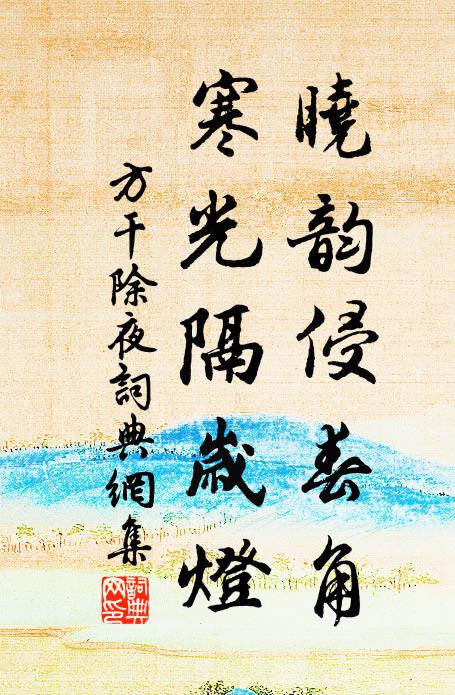 曉韵侵春角
寒光隔歲燈
方干除夜詞典網集
詞典网印